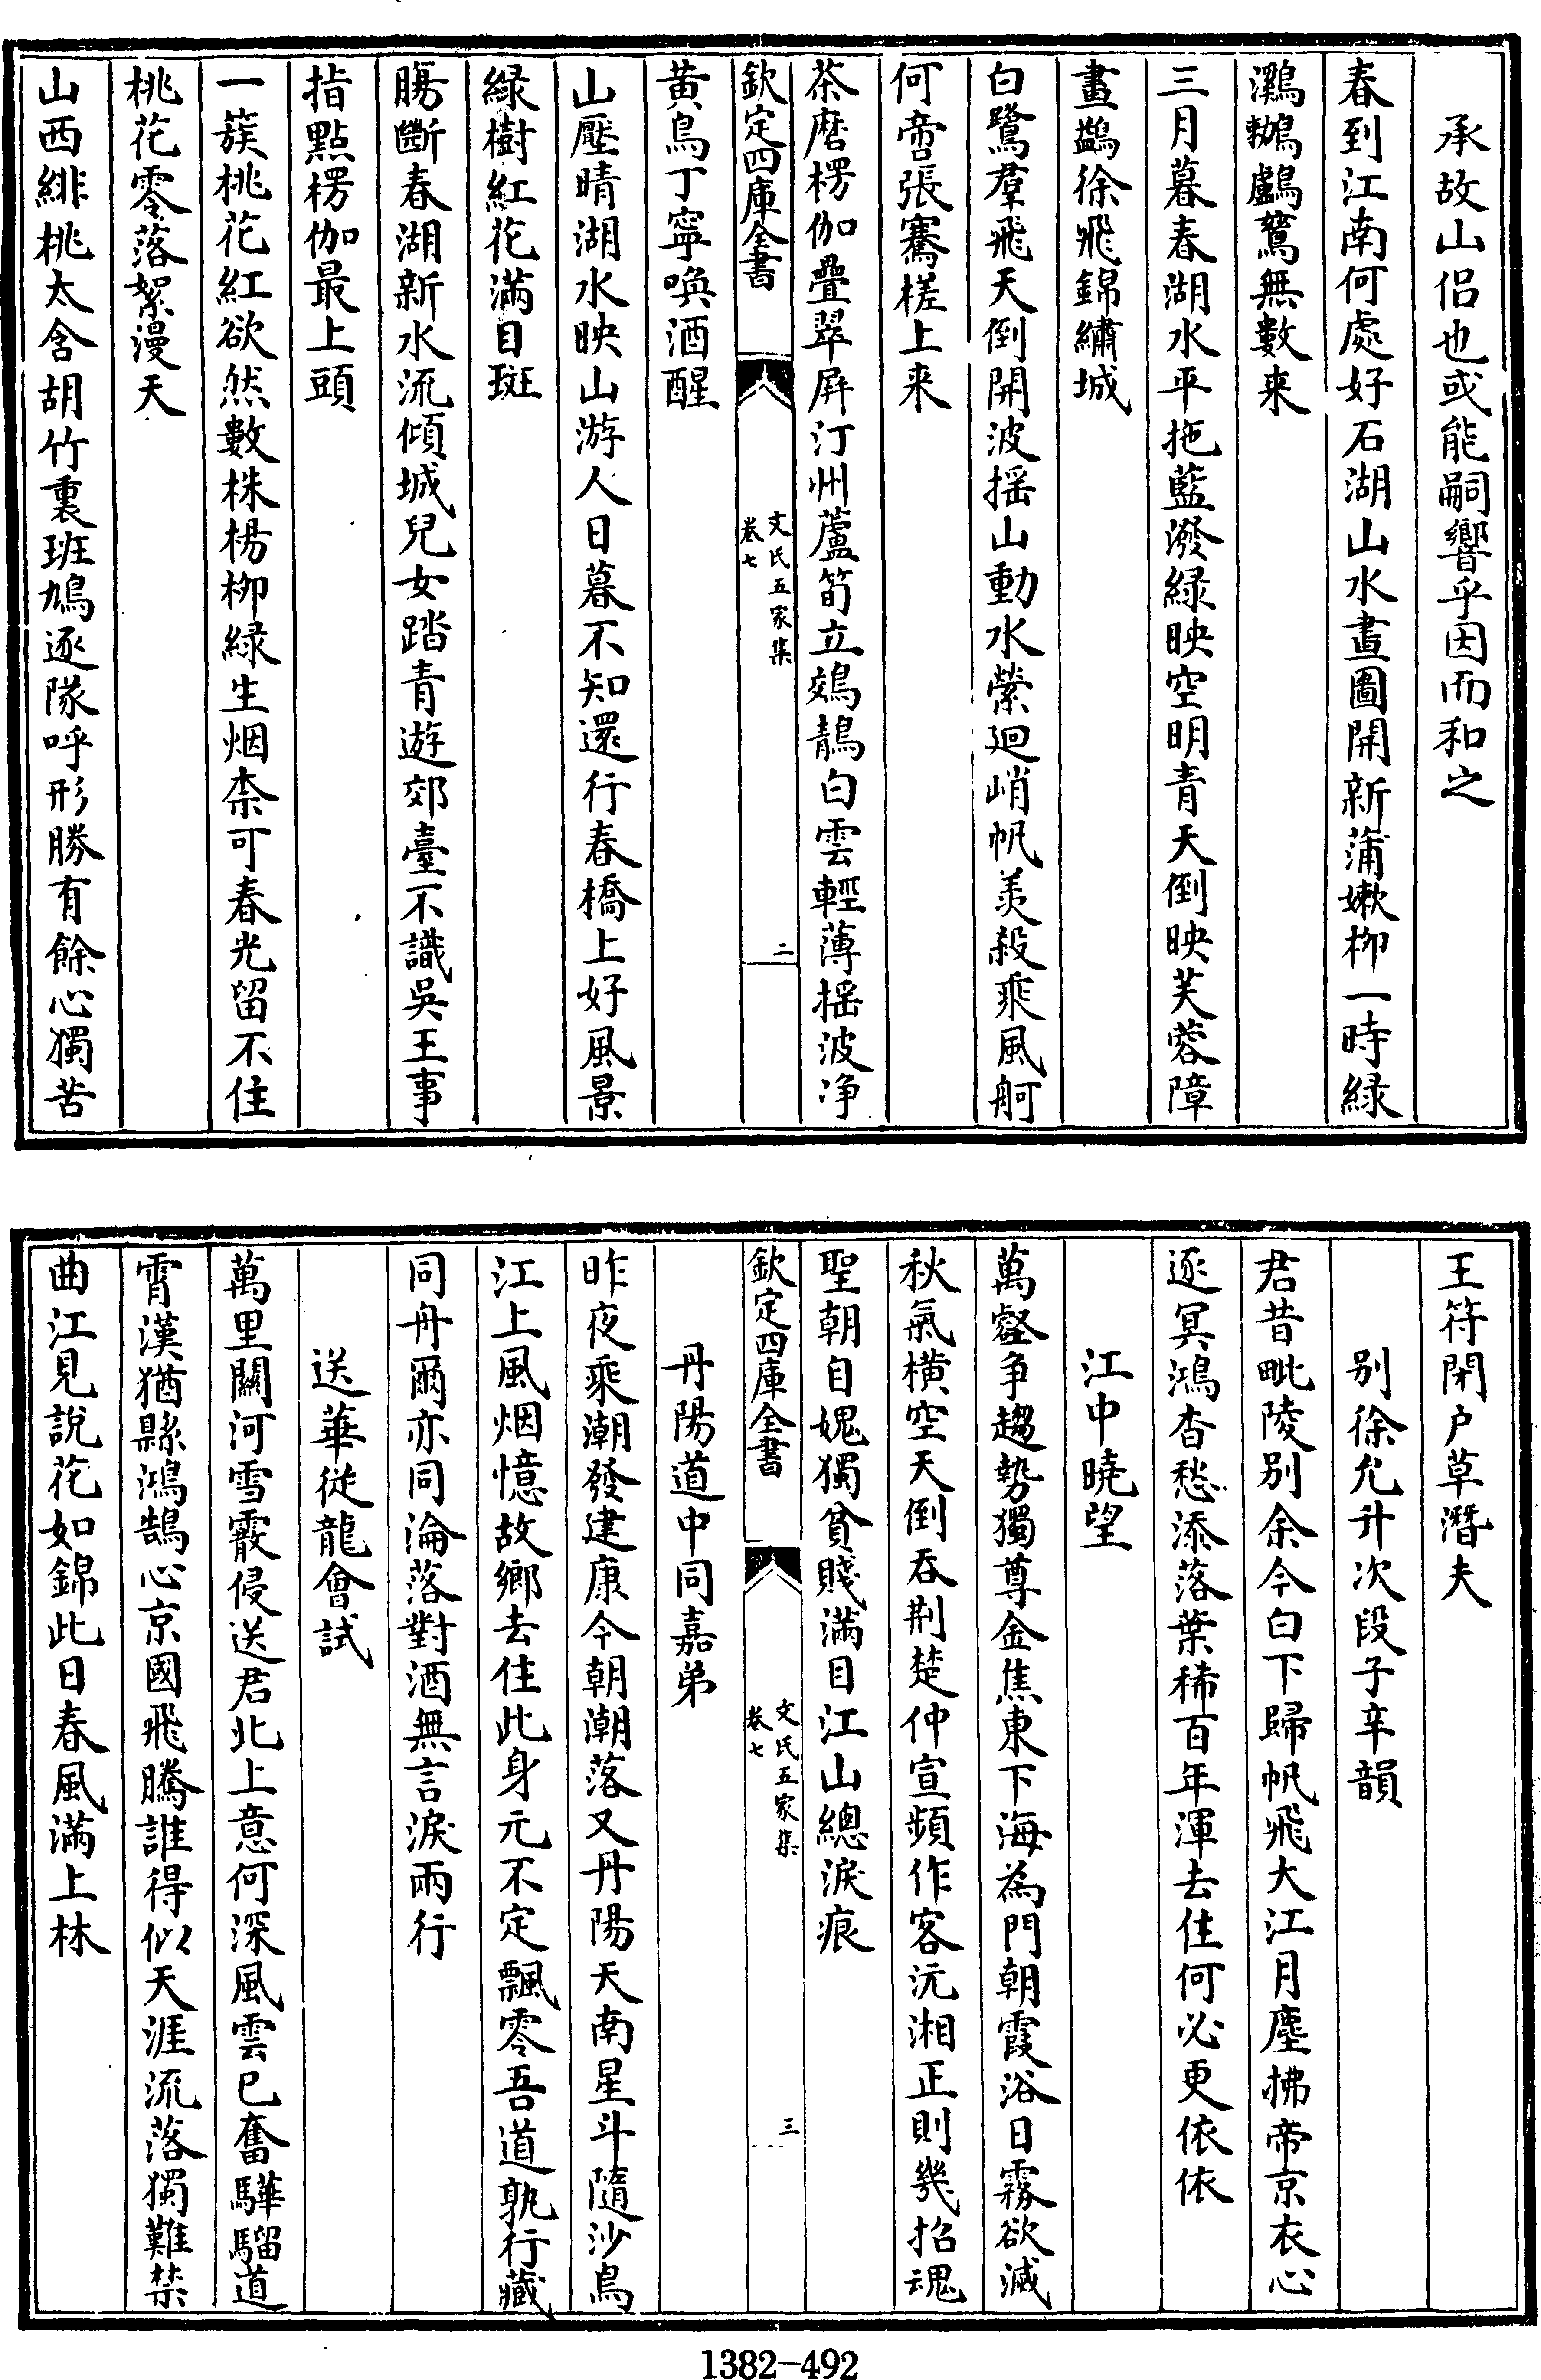 承故山侣也或能嗣響乎因而和之
春到江南何處好石湖山水畫圖開新蒲嫩柳一時緑
鸂鶒鸕鶿無數来
三月暮春湖水平拖藍潑緑映空明青天倒映芙蓉障
畫鷁徐飛錦繡城
白鷺羣飛天倒開波揺山動水縈廻峭帆羙殺乘風舸
何啻張騫槎上来
茶磨楞伽疊翠屏汀州蘆筍立鵁鶄白雲輕薄揺波净
欽定四庫全書
文氏五家集
卷七
二
黄鳥丁寧喚酒醒
山壓晴湖水映山游人日暮不知還行春橋上好風景
緑樹紅花满目斑
腸斷春湖新水流傾城兒女踏青遊郊臺不識吳王事
指點楞伽最上頭
一簇桃花紅欲然數株楊柳緑生烟柰可春光留不住
桃花零落絮漫天
山西緋桃太含胡竹裏班鳩逐隊呼形勝有餘心獨苦
王符閉户草潛夫
别徐允升次段子辛韻
君昔毗陵别余今白下歸帆飛大江月塵拂帝京衣心
逐冥鴻杳愁添落葉稀百年渾去住何必更依依
江中曉望
萬壑争趨勢獨尊金焦東下海為門朝霞浴日霧欲滅
秋氣横空天倒吞荆楚仲宣頻作客沅湘正則幾招魂
聖朝自媿獨貧賤满目江山總淚痕
欽定四庫全書
文氏五家集
卷七
三
丹陽道中同嘉弟
昨夜乘潮發建康今朝潮落又丹陽天南星斗隨沙鳥
江上風烟憶故鄉去住此身元不定飄零吾道孰行藏
同舟爾亦同淪落對酒無言淚兩行
送華從龍會試
萬里關河雪霰侵送君北上意何深風雲已奮驊騮道
霄漢猶縣鴻鵠心京國飛騰誰得似天涯流落獨難禁
曲江見說花如錦此日春風满上林
1382-492